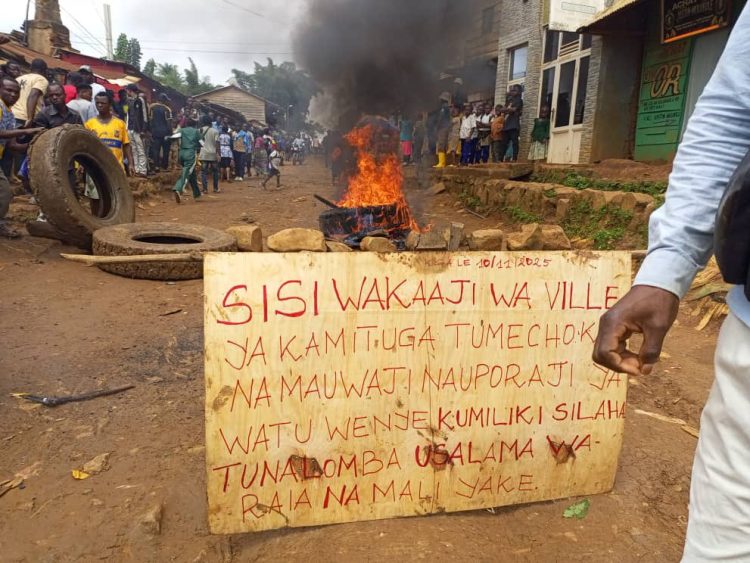 LE 10/11/2025
SISI WAKAAJI WA VILLE
YA KAMITUGA TUMECHOK
NA MAUWAJI NAUPORAJI YA
WATU WENJE KUMILIKI SILAHA
TUNALOMBA USALAMA WA-
RAIA NA MALI YAKE.